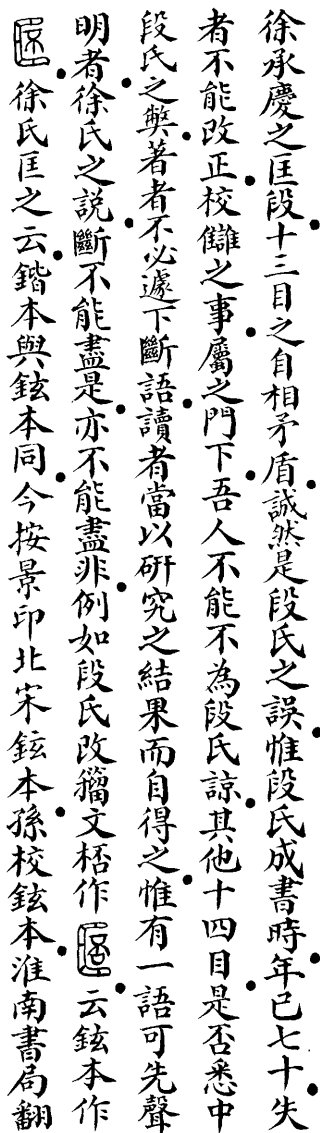 徐承慶之匡段十三目之自相矛盾誠然是段氏之誤惟段氏成書時年已七十失
者不能改正校讎之事屬之門下吾人不能不為段氏諒其他十四目是否悉中
段氏之弊著者不必遽下斷語讀者當以研究之結果而自得之惟有一語可先聲
明者徐氏之説斷不能盡是亦不能盡非例如段氏改籀文桮作云鉉本作
徐氏匡之云鍇本與鉉本同今按景印北宋鉉本孫校鉉本淮南書局翻